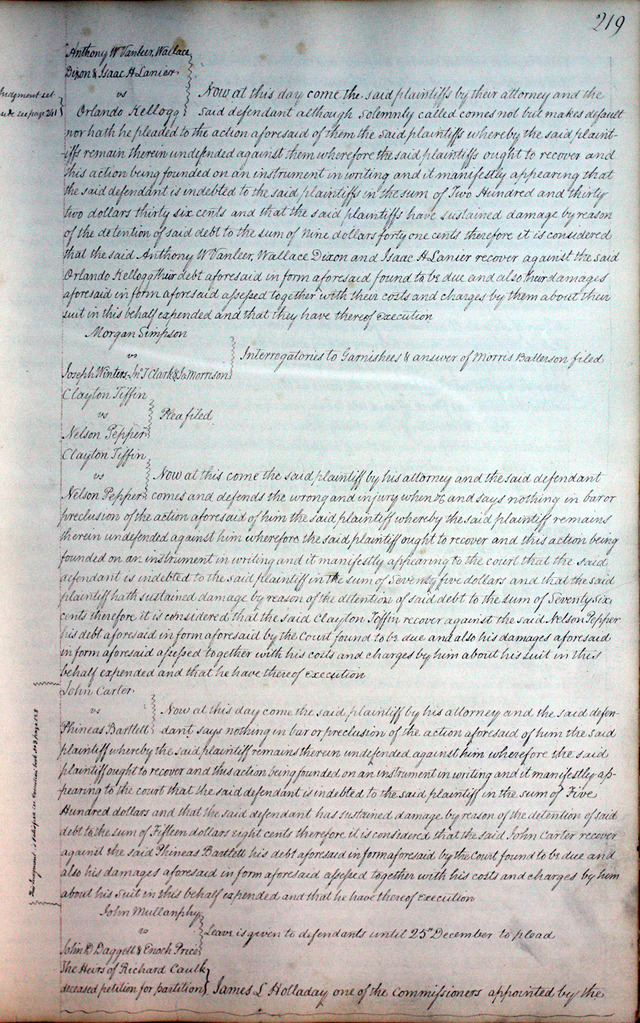 219
Anthony W Vanleer, Wallace
Dixon & Isaac H Lanier
Judgment set
vs
Now at this day come the said plaintiffs by their attorney and the
see page 241
Orlando Kellogg
said defendant although solemnly called comes not but makes default
nor hath he pleaded to the action aforesaid of them the said plaintiffs whereby the said plaint-
iffs remain therein undefended against them wherefore the said plaintiffs ought to recover and
this action being founded on an instrument in writing and it manifestly appearing that
the said defendant is indebted to the said plaintiffs in the sum of Two Hundred and thirty
two dollars thirty six cents and that the said plaintiffs have sustained damage by reason
of the detention of said debt to the sum of nine dollars forty one cents therefore it is considered
that the said Anthony W Vanleer, Wallace Dixon and Isaac H Lanier recover against the said
Orlando Kellogg their debt aforesaid in form aforesaid found to be due and also their damages
aforesaid in form aforesaid assessed together with their costs and charges by them about their
suit in this behalf expended and that they have thereof execution
Morgan Simpson
vs
Interrogatories to Garnishees & answer of Morris Batterson filed
Joseph Winters, Jn° J Clark & Ja Morrison
Clayton Tiffin
vs
Plea filed
Nelson Pepper
Clayton Tiffin
vs
Now at this come the said plaintiff by his attorney and the said defendant
Nelson Pepper
comes and defends the wrong and injury when &c and says nothing in bar or
preclusion of the action aforesaid of him the said plaintiff whereby the said plaintiff remains
therein undefended against him wherefore the said plaintiff ought to recover and this action being
founded on an instrument in writing and it manifestly appearing to the court that the said
defendant is indebted to the said plaintiff in the sum of Seventy five dollars and that the said
plaintiff hath sustained damage by reason of the detention of said debt to the sum of Seventy Six
cents therefore it is considered that the said Clayton Tiffin recover against the said Nelson Pepper
his debt aforesaid in form aforesaid by the Court found to be due and also his damages aforesaid
in form aforesaid assessed together with his costs and charges by him about his suit in this
behalf expended and that he have thereof execution
John Carter
vs
Now at this day come the said plaintiff by his attorney and the said defen-
Phineas Bartlett
dant says nothing in bar or preclusion of the action aforesaid of him the said
plaintiff whereby the said plaintiff remains therein undefended against him wherefore the said
plaintiff ought to recover and this action being founded on an instrument in writing and it manifestly ap-
pearing to the court that the said defendant is indebted to the said plaintiff in the sum of Five
Hundred dollars and that the said defendant has sustained damage by reason of the detention of said
debt to the sum of Fifteen dollars eight cents therefore it is considered that the said John Carter recover
against the said Phineas Bartlett his debt aforesaid in form aforesaid by the Court found to be due and
also his damages aforesaid in form aforesaid assessed together with his costs and charges by him
about his suit in this behalf expended and that he have thereof execution
This Judgment is
John Mullanphy
vs
Leave is given to defendants until 25th December to plead
John D Daggett & Enoch Price
The Heirs of Richard Caulk
deceased petition for partition
James L Holladay one of the Commissioners appointed by the